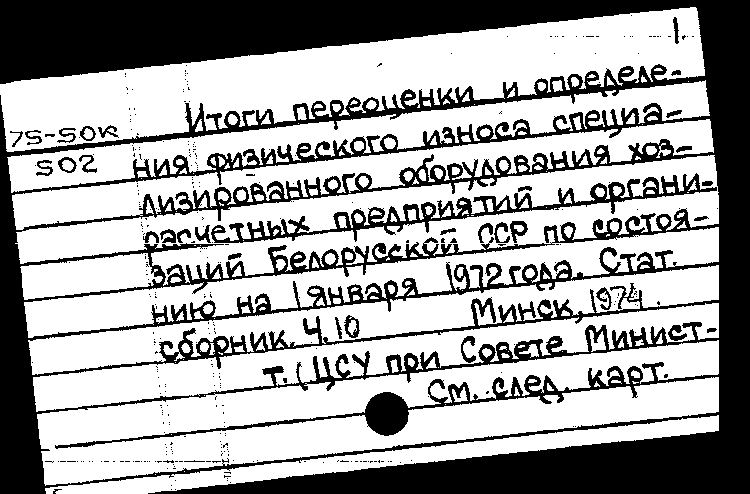 1.
Итоги переоценки и определе-
75-50к
ния физического износа специа-
502
лизированного оборудования хоз-
расчетных предприятий и органи-
заций Белорусской ССР по состоя-
нию на 1 января 1972 года. Стат.
сборник. Ч. 10 Минск, 1974.
т. (ЦСУ при Совете Минист-
См. след. карт.